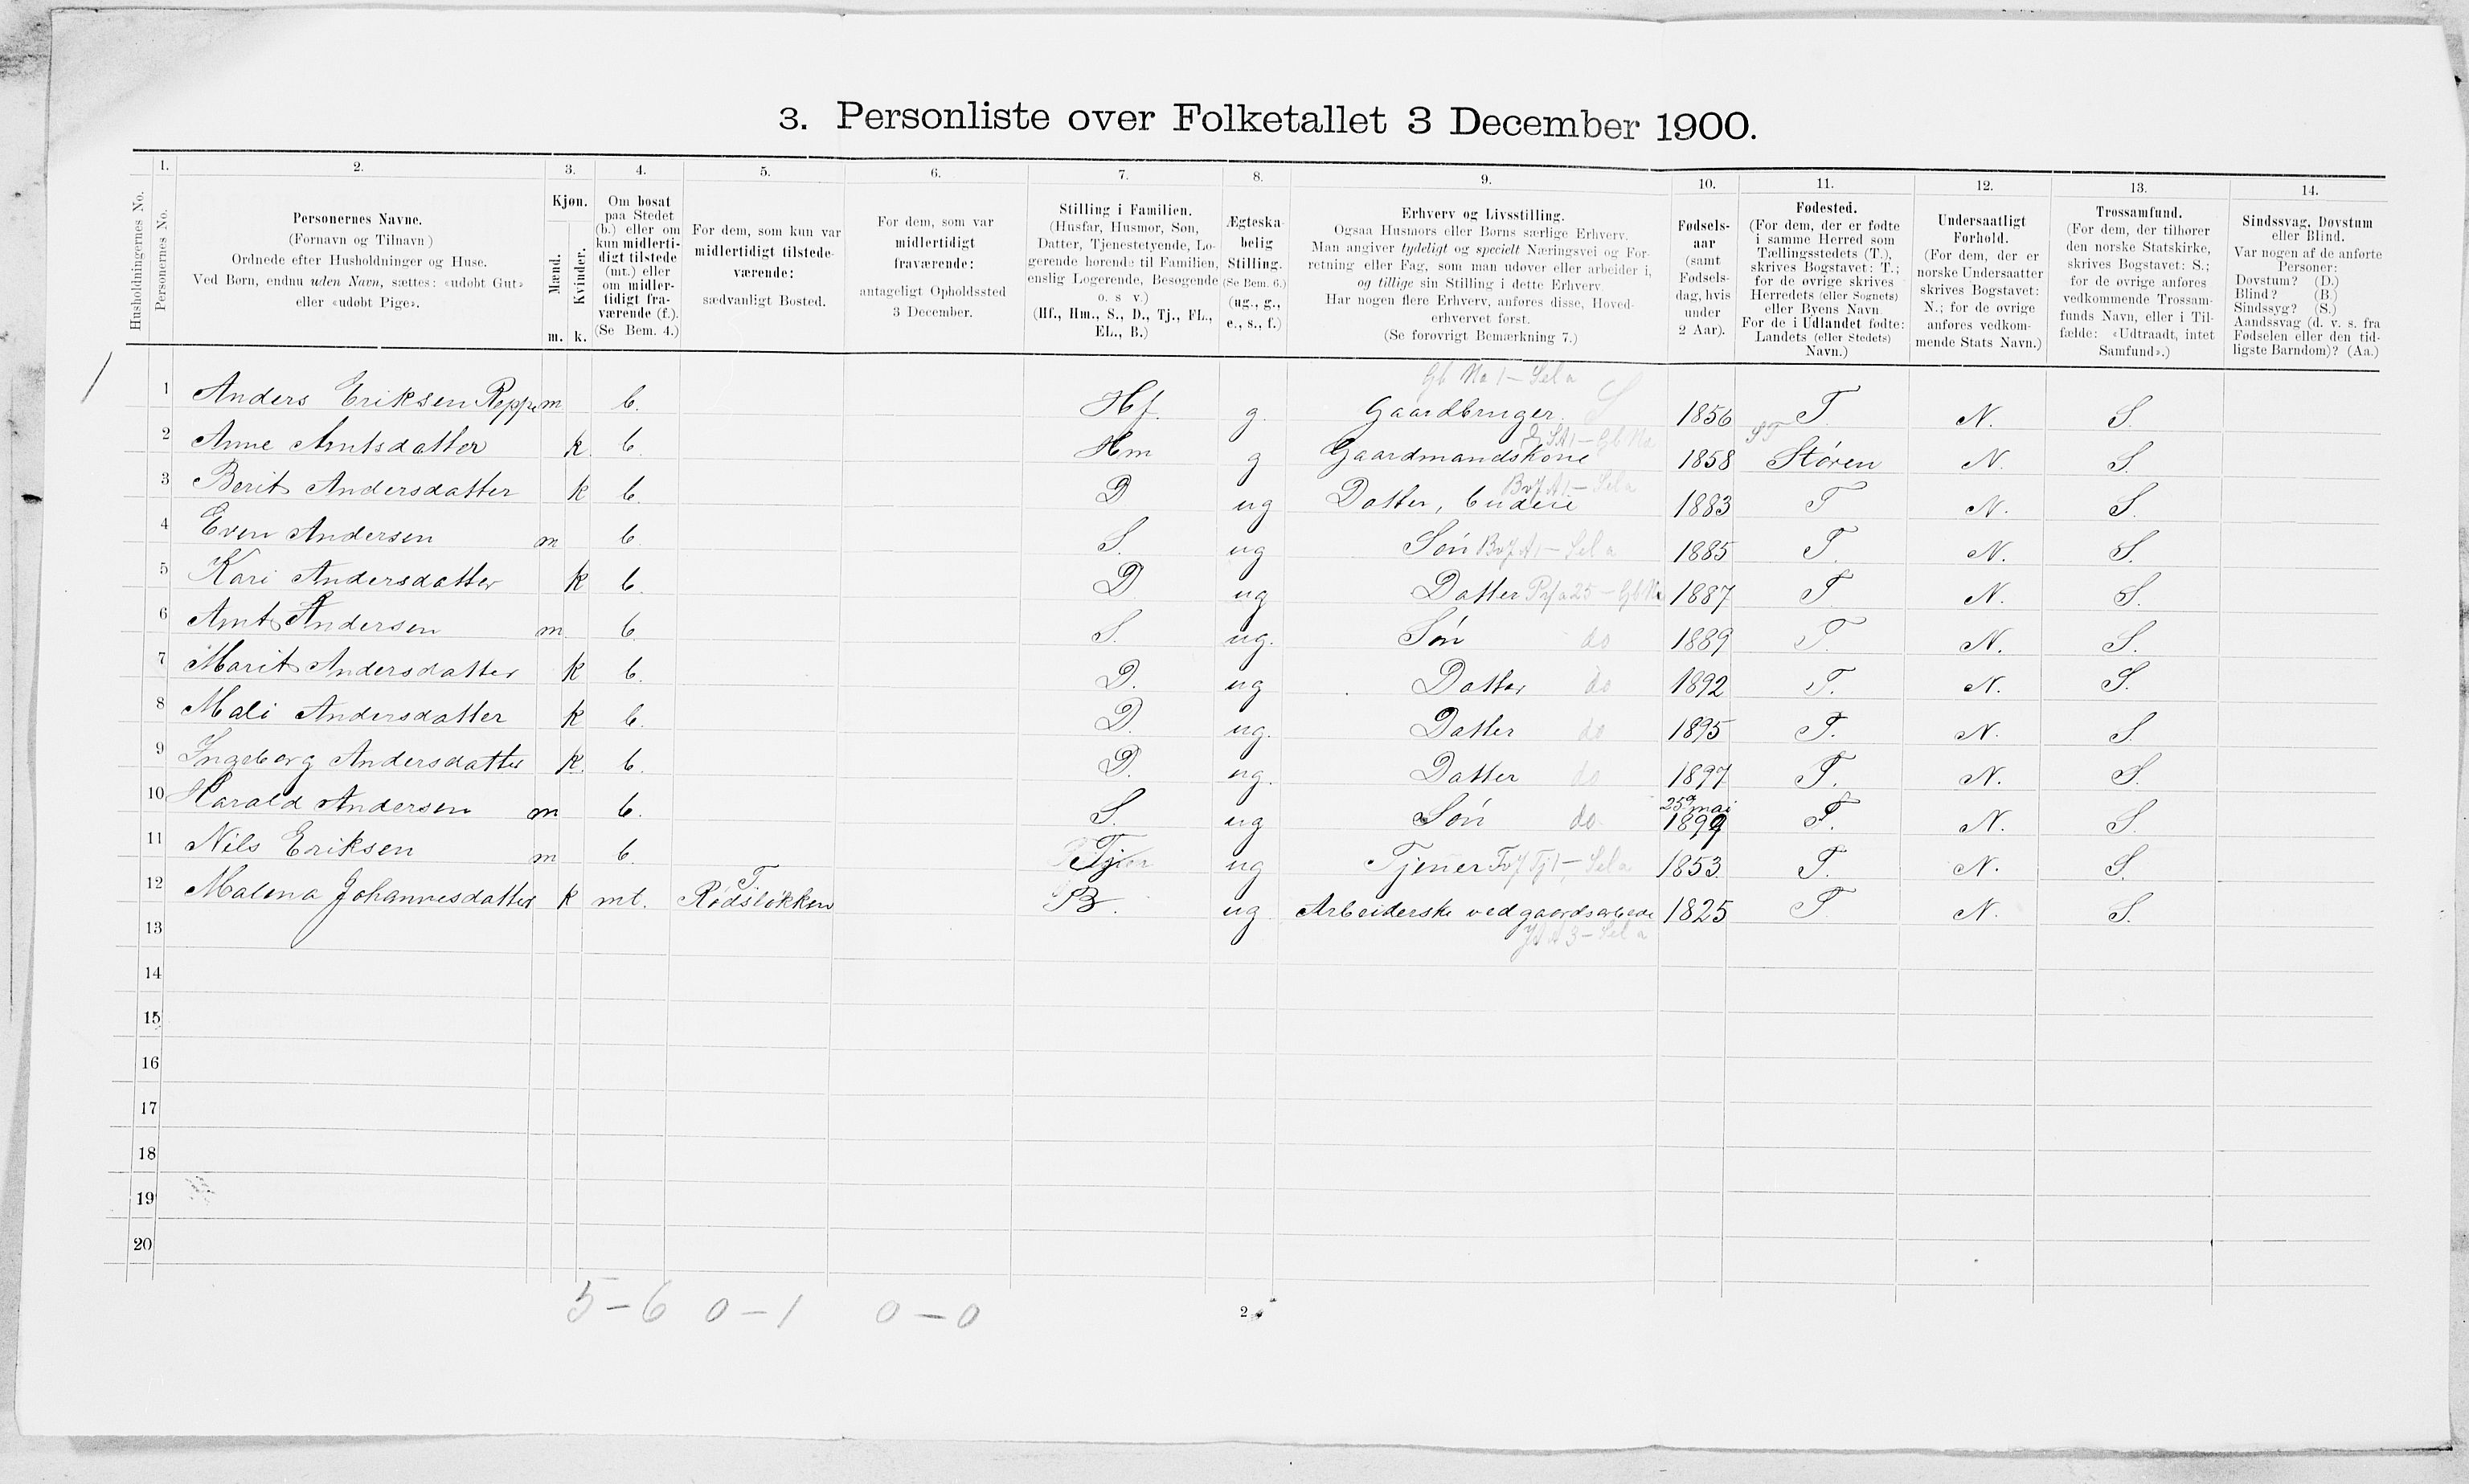 3. Personliste over Folketallet 3 December 1900.
1. 2. 3. 4. 5. 6. 7. 8. 9. 10. 11. 12. 13. 14.
Husholdningernes No.
Personernes No.
Personernes Navne.
(Fornavn og Tilnavn)
Ordnede efter Husholdninger og Huse.
Ved Børn, endnu uden Navn, sættes: «udøbt Gut»
eller «udøbt Pige».
Kjøn.
Mænd.
Kvinder.
m. k.
Om bosat
paa Stedet
(b.) eller om
kun midlerti-
digt tilstede
(mt.) eller
om midler-
tidigt fra-
værende (f.).
(Se Bem. 4.)
For dem, som kun var
midlertidigt tilstede-
værende:
sædvanligt Bosted.
For dem, som var
midlertidigt
fraværende:
antageligt Opholdssted
3 December.
Stilling i Familien.
(Husfar, Husmor, Søn,
Datter, Tjenestetyende, Lo-
gerende hørende til Familien,
enslig Logerende, Besøgende
o. s v.)
(Hf., Hm., S., D., Tj., FL.,
EL., B.)
Ægteska-
belig
Stilling.
(Se Bem. 6.)
(ug., g.,
e., s., f.)
Erhverv og Livsstilling.
Ogsaa Husmors eller Børns særlige Erhverv.
Man angiver tydeligt og specielt Næringsvei og For-
retning eller Fag, som man udøver eller arbeider i,
og tillige sin Stilling i dette Erhverv.
Har nogen flere Erhverv, anføres disse, Hoved-
erhvervet først.
(Se forøvrigt Bemærkning 7.)
Fødsels-
aar
(samt
Fødsels-
dag, hvis
under
2 Aar).
Fødested.
(For dem, der er fødte
i samme Herred som
Tællingsstedets (T.),
skrives Bogstavet: T.;
for de øvrige skrives
Herredets (eller Sognets)
eller Byens Navn.
For de i Udlandet fødte:
Landets (eller Stedets)
Navn.)
Undersaatligt
Forhold.
(For dem, der er
norske Undersaatter
skrives Bogstavet:
N.; for de øvrige
anføres vedkom-
mende Stats Navn.)
Trossamfund.
(For dem, der tilhører
den norske Statskirke,
skrives Bogstavet: S.;
for de øvrige anføres
vedkommende Trossam-
funds Navn, eller i Til-
fælde: «Udtraadt, intet
Samfund».)
Sindssvag, Døvstum
eller Blind.
Var nogen af de anførte
Personer:
Døvstum? (D.)
Blind? (B.)
Sindssyg? (S.)
Aandssvag (d. v. s. fra
Fødselen eller den tid-
ligste Barndom)? (Aa.)
1 Anders Eriksen Reppe m b. Hf. g. Gaardbruger 1856 T. N. S.
2 Anne Arntsdatter k. b. Hm g Gaardmandskone 1858 Støren N. S.
3 Berit Andersdatter k b. D ug Datter, budeie 1883 T N. S.
4 Even Andersen m b. S. ug Søn 1885 T. N. S.
5 Kari Andersdatter k b. D ug Datter 1887 T. N. S.
6 Arnt Andersen m b. S. ug. Søn do 1889 T. N. S.
7 Marit Andersdatter k b. D. ug Datter do 1892 T. N. S.
8 Mali Andersdatter k b. D. ug. Datter do 1895 T. N. S.
9 Ingeborg Andersdatter k. b. D. ug. Datter do 1897 T. N. S.
10 Harald Andersen m b. S. ug Søn do 25de mai 1899 T. N. S.
11 Nils Eriksen m b. Tj ug Tjener 1853 T. N. S.
12 Malena Johannesdatter k mt. T. Rødsløkken B. ug Arbeiderske ved gaardsarbeide 1825 T N. S.
13
14
15
16
17
18
19
20
5 – 6 0 – 1 0 – 0
2